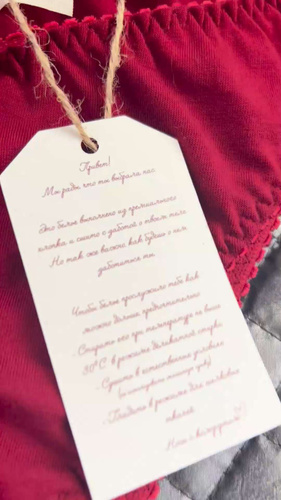 Привет!
Мы рады, что ты выбрала нас
Это белье выполнено из премиального
хлопка и сшито с заботой о твоем теле
Но так же важно как будешь о нем
заботиться ты
Чтобы белье прослужило тебе как
можно дольше, предпочтительно
Стирать его при температуре не выше
30°С в режиме деликатной стирки
. Сушить в естественных условиях
. Гладить в режиме для хлопковых
тканей